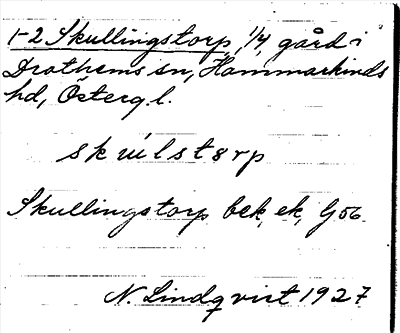 1-2 Skullingstorp, 1/4, gård i
Drothems sn, Hammarkinds
hd, Östergl.
Skullingstorp bek, ek, G56.
N. Lindqvist 1927